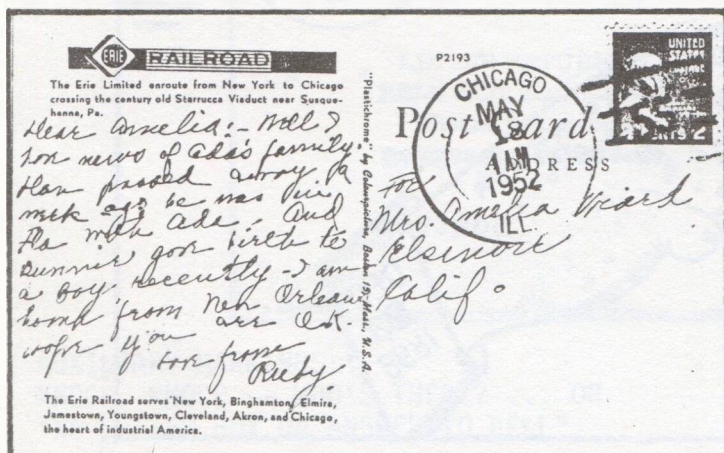 ERIE RAILROAD
The Erie Limited enroute from New York to Chicago
crossing the century old Starrucca Viaduct near Susque-
hanna, Pa.
Dear Amelia:- Well I
have news of Ada's family.
passed away a
week ago he was
with Ada. And
gave birth to
a boy recently - I am
home from New Orleans
hope you are O.K.
Love from
Ruby.
The Erie Railroad serves New York, Binghamton, Elmira,
Jamestown, Youngstown, Cleveland, Akron, and Chicago,
the heart of industrial America.
"Plastichrome" by Colourpicture, Boston 15, Mass., U.S.A.
P2193
Post Card
ADDRESS
CHICAGO
MAY
18
1952
ILL.
UNITED
STATES
For
Mrs. Amelia Wiard
Elsinore
Calif.